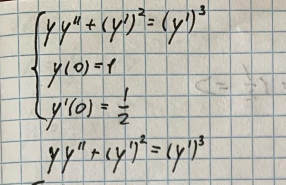 yy'' + (y')² = (y')³
y(0) = 1
y'(0) = 1/2
yy'' + (y')² = (y')³